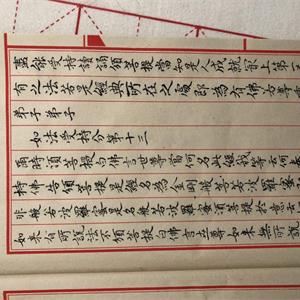 盡能受持讀誦須菩提當知是人成就最上第
有之法若是經典所在之處即為有佛若尊
弟子弟子
如法受持分第十三
爾時須菩提白佛言世尊當何名此經我等云何
持佛告須菩提是經名為金剛般若波羅蜜
非般若波羅蜜是名般若波羅蜜須菩提於意云
如來有所說法不須菩提白佛言世尊如來無所說